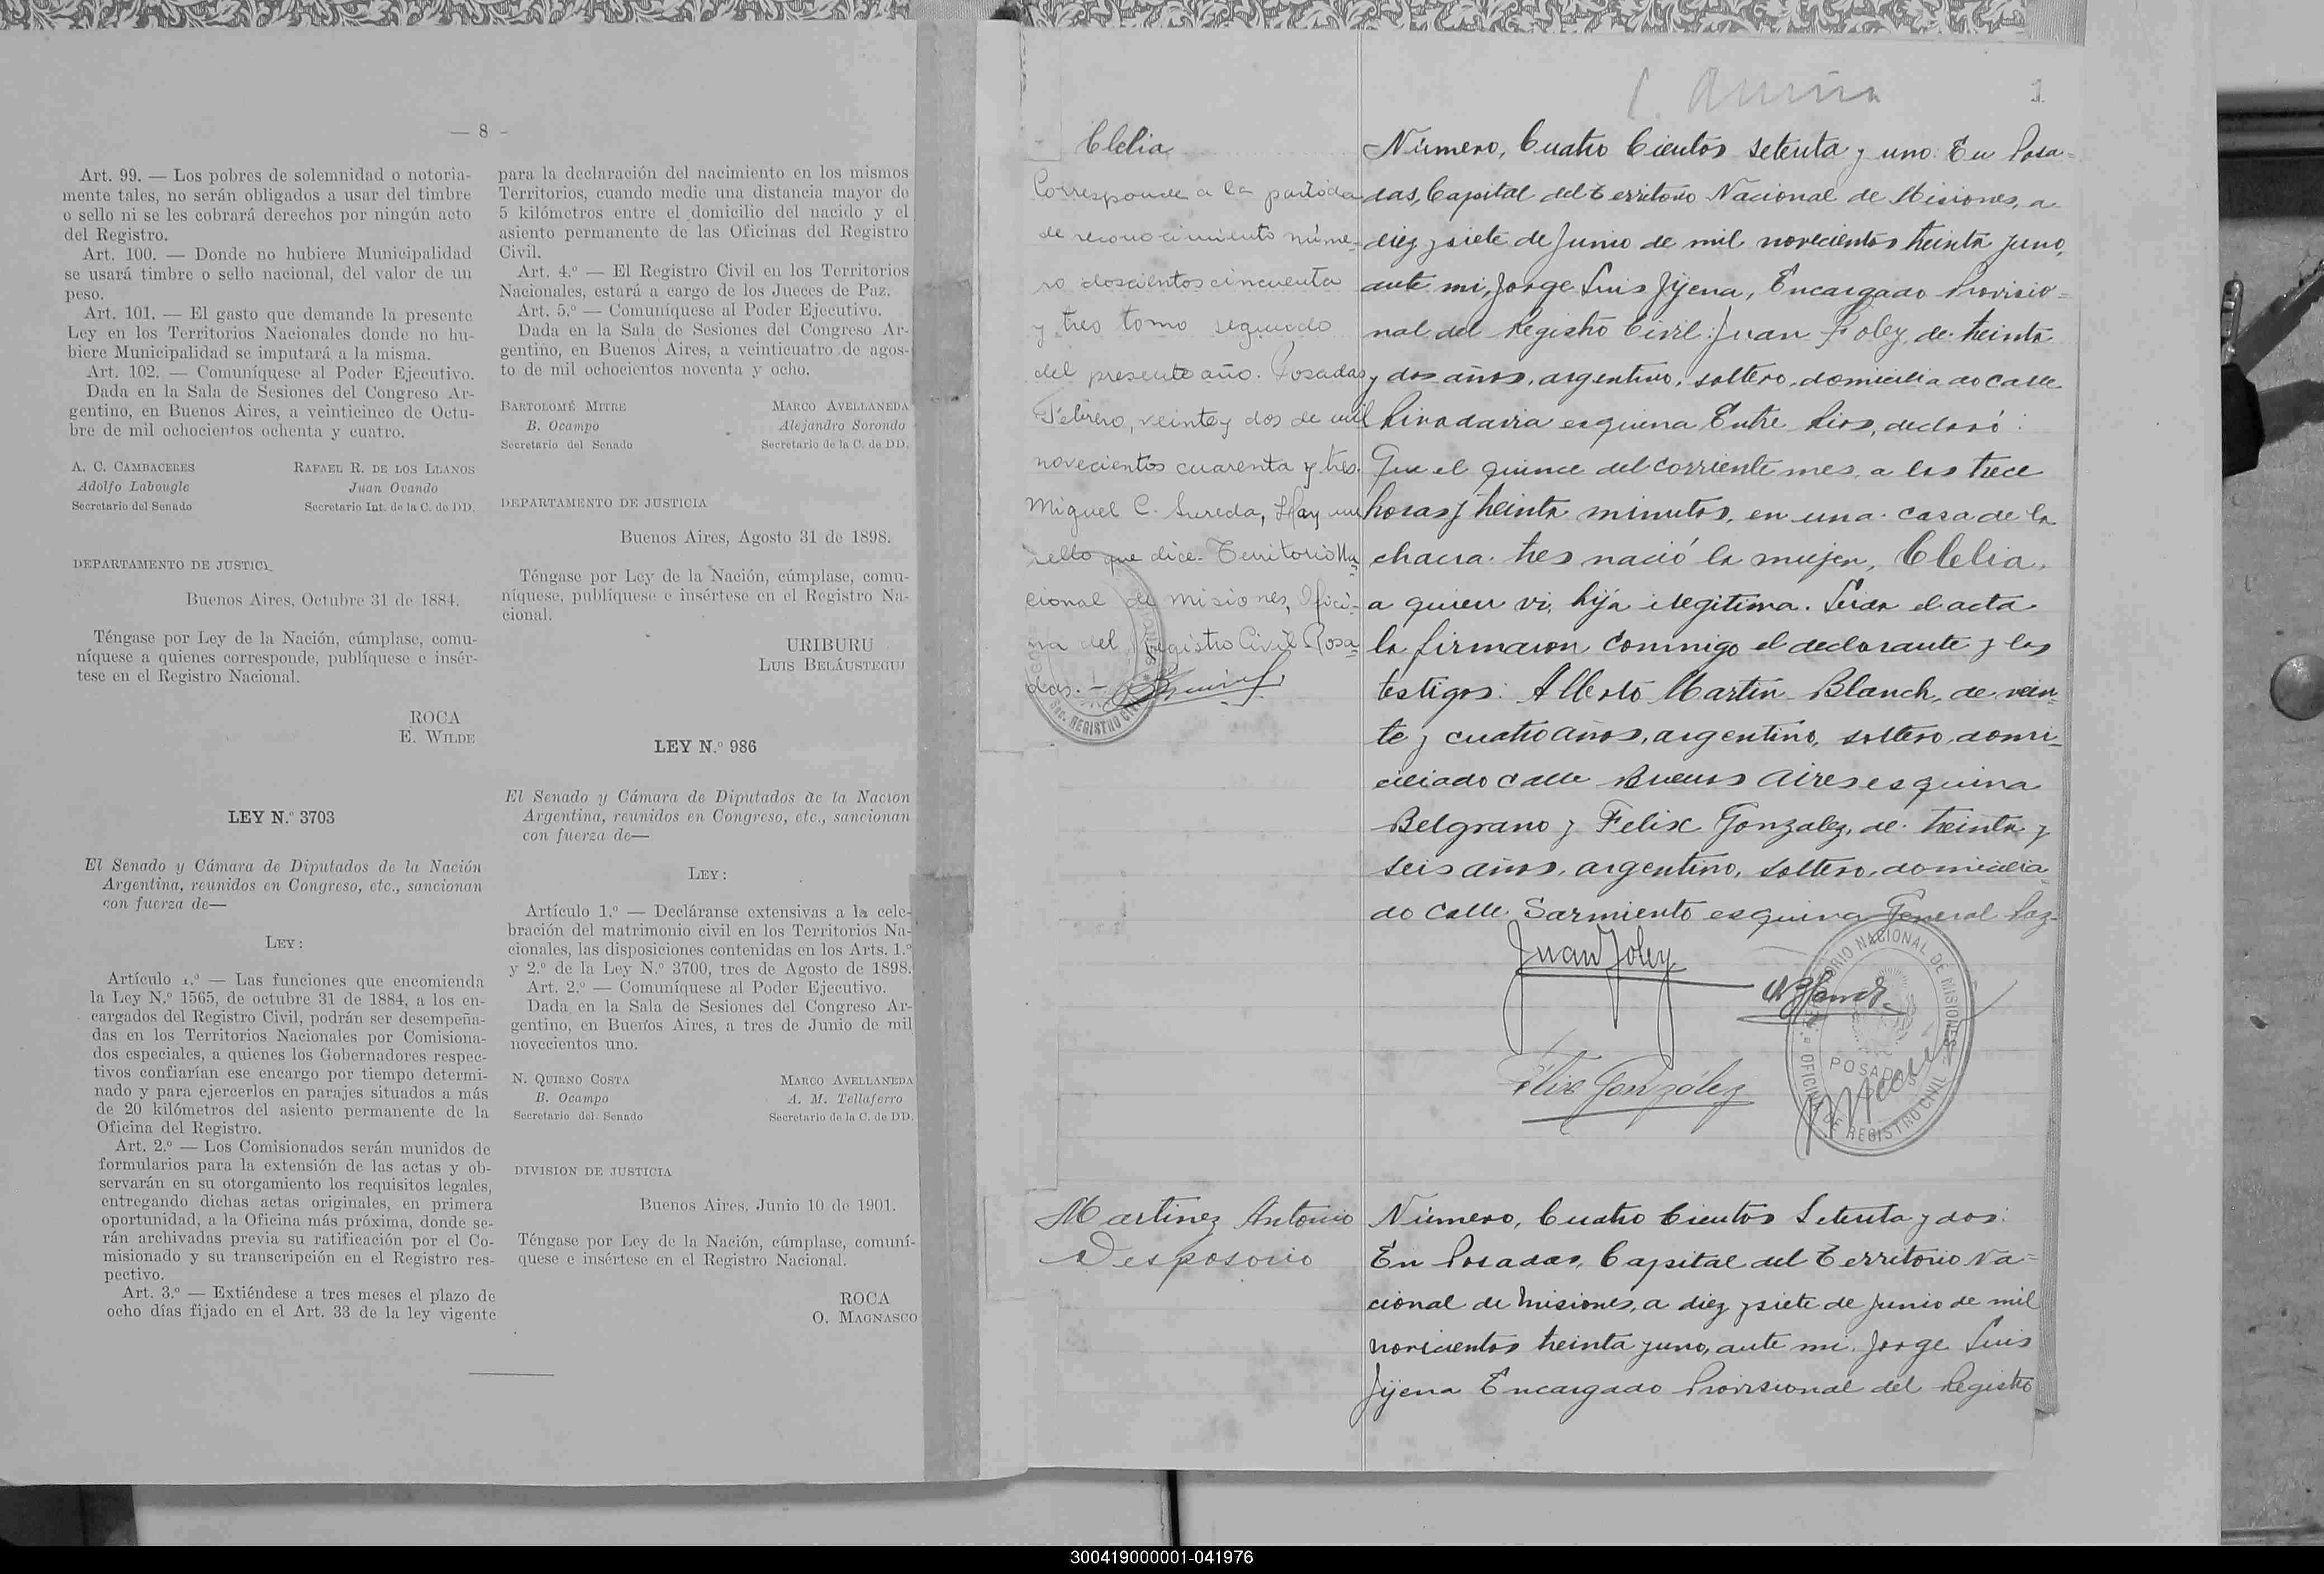 — 8 -
Art. 99. — Los pobres de solemnidad o notoria-
mente tales, no serán obligados a usar del timbre
o sello ni se les cobrará derechos por ningún acto
del Registro.
Art. 100. — Donde no hubiere Municipalidad
se usará timbre o sello nacional, del valor de un
peso.
Art. 101. — El gasto que demande la presente
Ley en los Territorios Nacionales donde no hu-
biere Municipalidad se imputará a la misma.
Art. 102. — Comuníquese al Poder Ejecutivo.
Dada en la Sala de Sesiones del Congreso Ar-
gentino, en Buenos Aires, a veinticinco de Octu-
bre de mil ochocientos ochenta y cuatro.
A. C. CAMBACERES RAFAEL R. DE LOS LLANOS
Adolfo Labougle Juan Ovando
Secretario del Senado Secretario Int. de la C. de DD.
DEPARTAMENTO DE JUSTICI
Buenos Aires, Octubre 31 de 1884.
Téngase por Ley de la Nación, cúmplase, comu-
níquese a quienes corresponde, publíquese e insér-
tese en el Registro Nacional.
ROCA
E. WILDE
LEY N.º 3703
El Senado y Cámara de Diputados de la Nación
Argentina, reunidos en Congreso, etc., sancionan
con fuerza de—
LEY:
Artículo 1.º — Las funciones que encomienda
la Ley N.º 1565, de octubre 31 de 1884, a los en-
cargados del Registro Civil, podrán ser desempeña-
das en los Territorios Nacionales por Comisiona-
dos especiales, a quienes los Gobernadores respec-
tivos confiarían ese encargo por tiempo determi-
nado y para ejercerlos en parajes situados a más
de 20 kilómetros del asiento permanente de la
Oficina del Registro.
Art. 2.º — Los Comisionados serán munidos de
formularios para la extensión de las actas y ob-
servarán en su otorgamiento los requisitos legales,
entregando dichas actas originales, en primera
oportunidad, a la Oficina más próxima, donde se-
rán archivadas previa su ratificación por el Co-
misionado y su transcripción en el Registro res-
pectivo.
Art. 3.º — Extiéndese a tres meses el plazo de
ocho días fijado en el Art. 33 de la ley vigente
para la declaración del nacimiento en los mismos
Territorios, cuando medie una distancia mayor de
5 kilómetros entre el domicilio del nacido y el
asiento permanente de las Oficinas del Registro
Civil.
Art. 4.º — El Registro Civil en los Territorios
Nacionales, estará a cargo de los Jueces de Paz.
Art. 5.º — Comuníquese al Poder Ejecutivo.
Dada en la Sala de Sesiones del Congreso Ar-
gentino, en Buenos Aires, a veinticuatro de agos-
to de mil ochocientos noventa y ocho.
BARTOLOMÉ MITRE MARCO AVELLANEDA
B. Ocampo Alejandro Sorondo
Secretario del Senado Secretario de la C. de DD.
DEPARTAMENTO DE JUSTICIA
Buenos Aires, Agosto 31 de 1898.
Téngase por Ley de la Nación, cúmplase, comu-
níquese, publíquese e insértese en el Registro Na-
cional.
URIBURU
LUIS BELÁUSTEGUI
LEY N.º 986
El Senado y Cámara de Diputados de la Nación
Argentina, reunidos en Congreso, etc., sancionan
con fuerza de—
LEY:
Artículo 1.º — Decláranse extensivas a la cele-
bración del matrimonio civil en los Territorios Na-
cionales, las disposiciones contenidas en los Arts. 1.º
y 2.º de la Ley N.º 3700, tres de Agosto de 1898.
Art. 2.º — Comuníquese al Poder Ejecutivo.
Dada en la Sala de Sesiones del Congreso Ar-
gentino, en Buenos Aires, a tres de Junio de mil
novecientos uno.
N. QUIRNO COSTA MARCO AVELLANEDA
B. Ocampo A. M. Tellaferro
Secretario del Senado Secretario de la C. de DD.
DIVISION DE JUSTICIA
Buenos Aires, Junio 10 de 1901.
Téngase por Ley de la Nación, cúmplase, comuní-
quese e insértese en el Registro Nacional.
ROCA
O. MAGNASCO
1
Clelia
Corresponde a la partida
de reconocimiento núme-
ro doscientos cincuenta
y tres tomo segundo
del presente año. Posadas
Febrero, veinte y dos de mil
novecientos cuarenta y tres.
Miguel C. Sureda, Hay un
sello que dice. Territorio Na-
cional de Misiones, Ofici-
na del Registro Civil Posa-
das. -
Sec. REGISTRO CIVIL
Número, Cuatro Cientos setenta y uno: En Posa=
das, Capital del Territorio Nacional de Misiones, a
diez y siete de Junio de mil novecientos treinta y uno,
ante mi, Jorge Luis Jijena, Encargado Provisio=
nal del Registro Civil: Juan Foley, de treinta
y dos años, argentino, soltero, domiciliado calle
Rivadavia esquina Entre Rios, declaró:
Que el quince del corriente mes, a las trece
horas y treinta minutos, en una casa de la
chacra tres nació la mujer, Clelia,
a quien vi, hija ilegitima. Leida el acta
la firmaron conmigo el declarante y los
testigos: Alberto Martin Blanch, de vein-
te y cuatro años, argentino, soltero, domi-
ciliado calle Buenos Aires esquina
Belgrano y Felix Gonzalez, de treinta y
seis años, argentino, soltero, domicilia-
do calle Sarmiento esquina General Paz.
Juan Foley
Félix González
TERRITORIO NACIONAL DE MISIONES
POSADAS
OFICINA DE REGISTRO CIVIL
Martinez Antonio
Desposorio
Número, Cuatro Cientos Setenta y dos:
En Posadas, Capital del Territorio Na=
cional de Misiones, a diez y siete de Junio de mil
novecientos treinta y uno, ante mi, Jorge Luis
Jijena Encargado Provisional del Registro
300419000001-041976